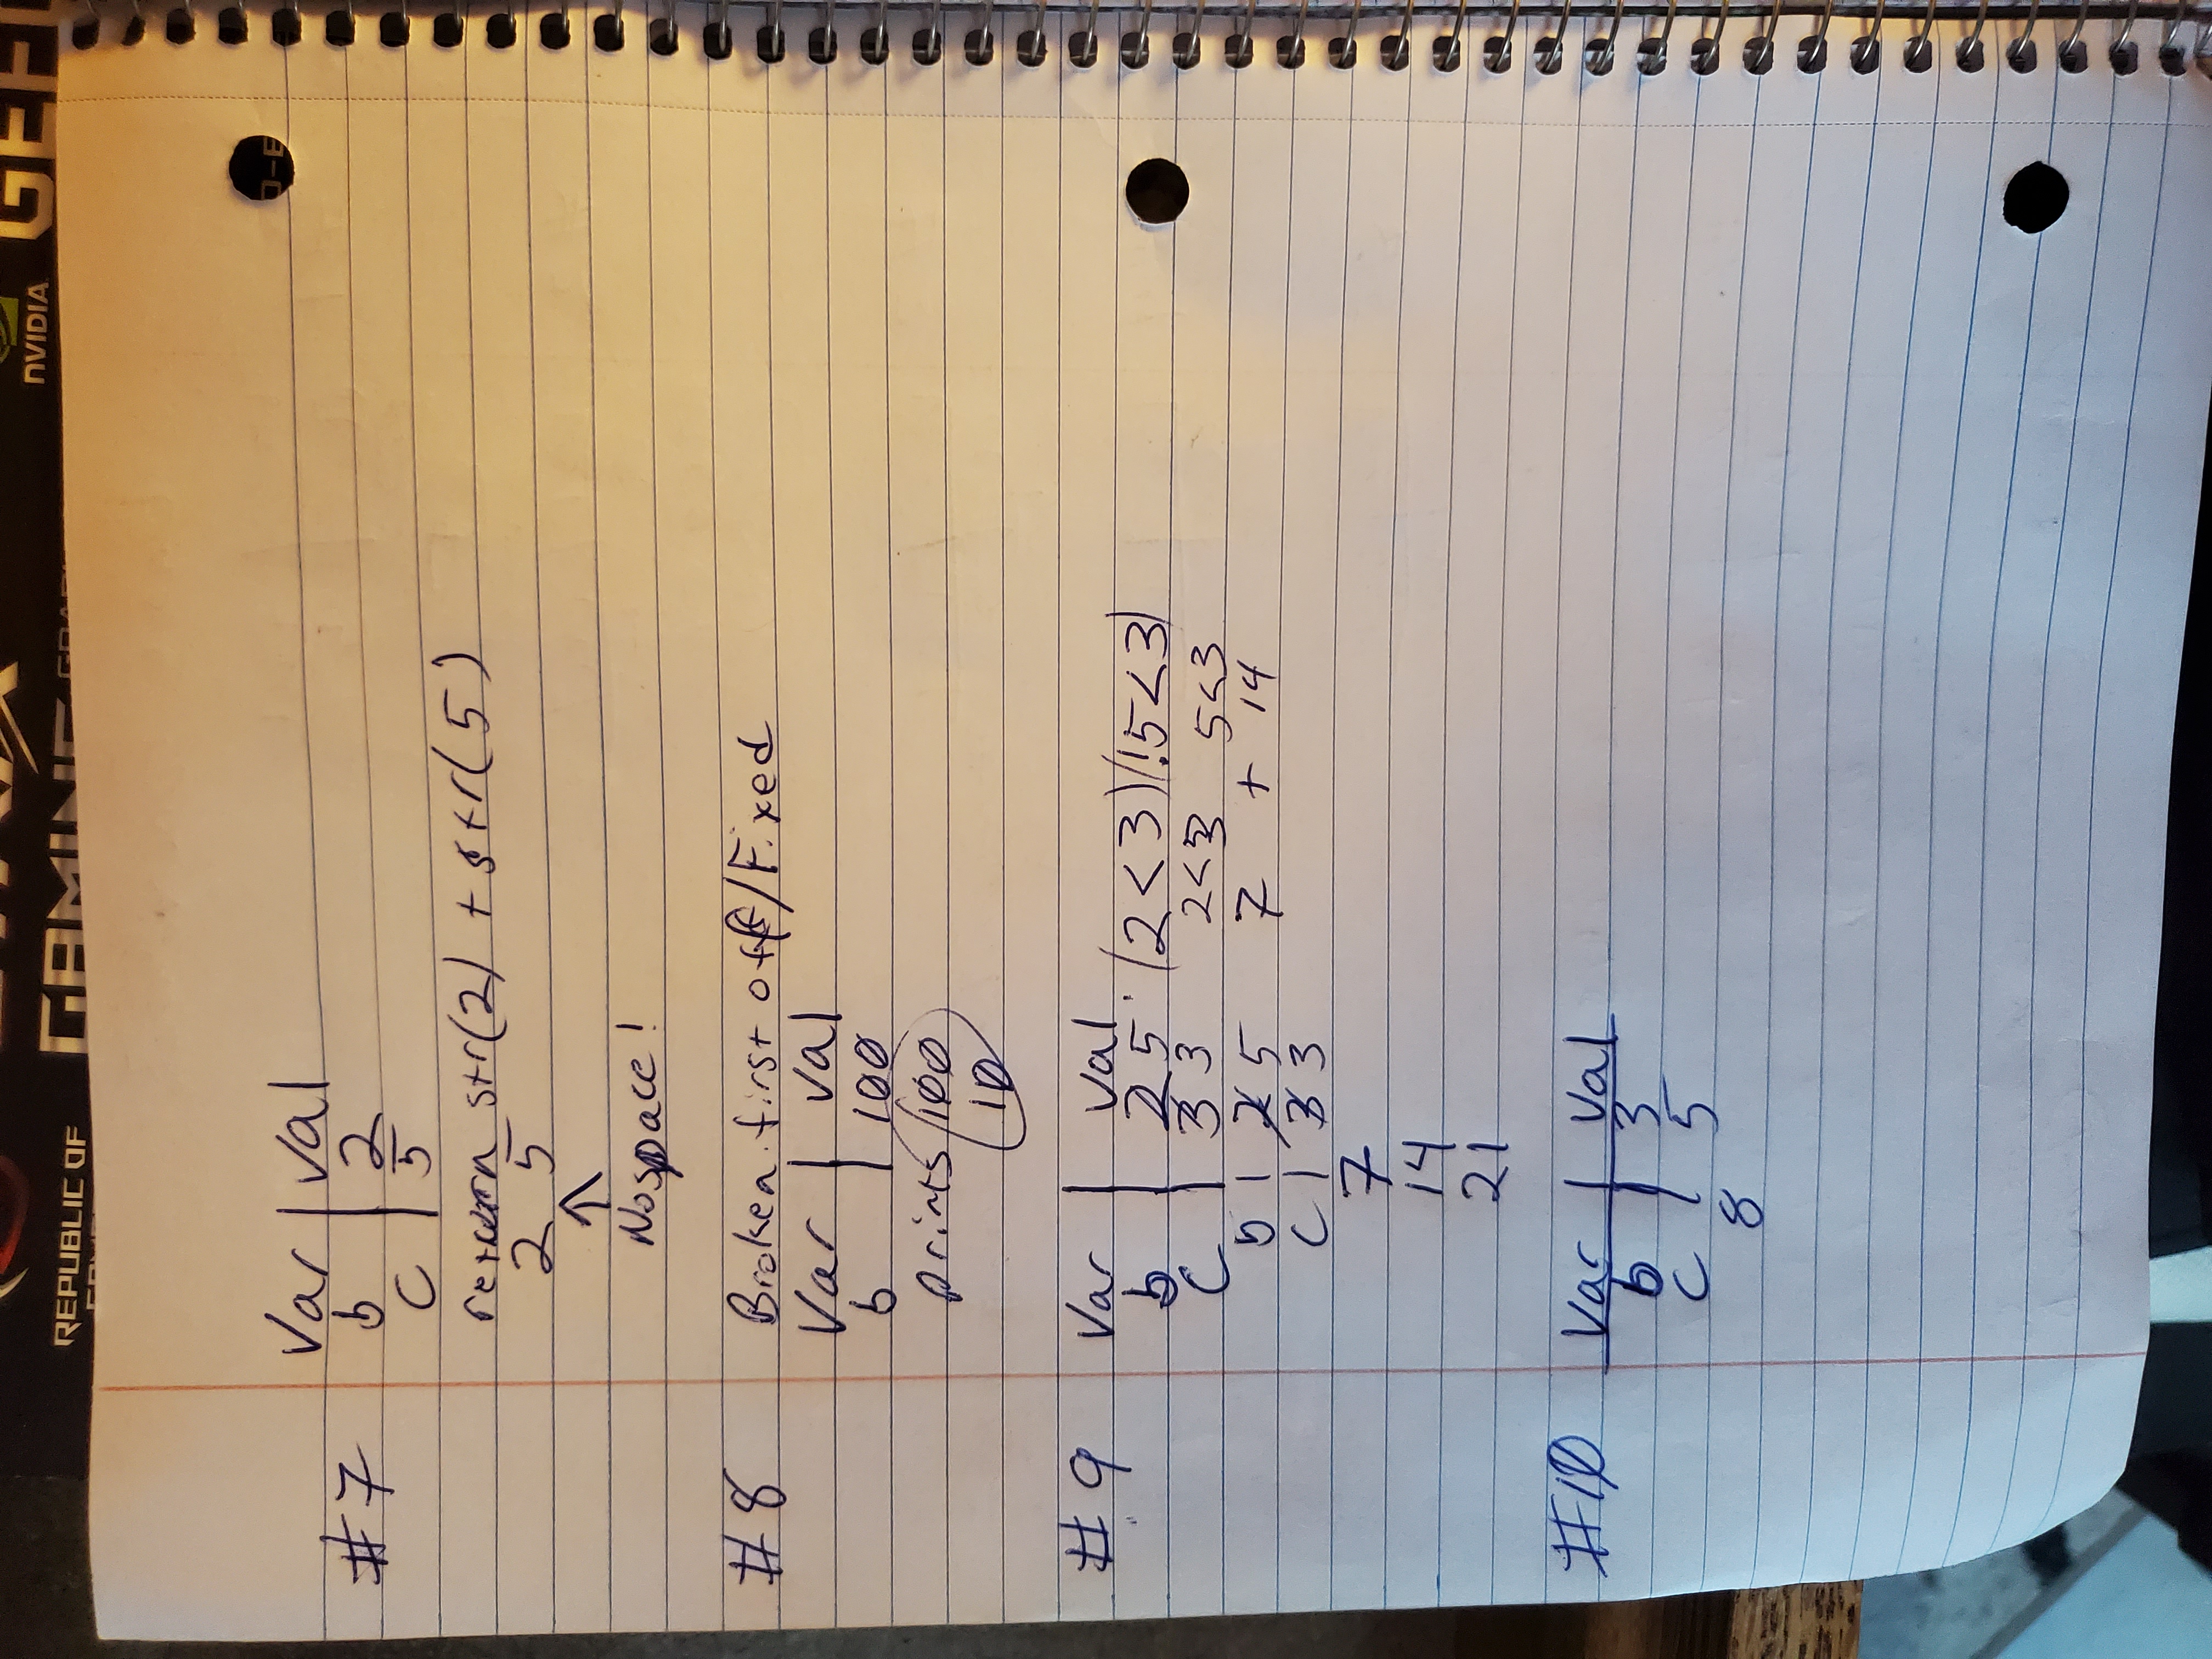 REPUBLIC OF
GAMING
NVIDIA
Var | Val
#7 b | 2
C | 5
return str(2) + str(5)
2 5
↑
No space!
#8 Broken first off/Fixed
Var | Val
b | 100
prints 100
10
#9 Var | Val
b | 2 5 (2<3)(!5<3)
C | 3 3 2<3 5<3
b | 2 5 7 + 14
C | 3 3
7
14
21
#10 Var | Val
b | 3
C | 5
8